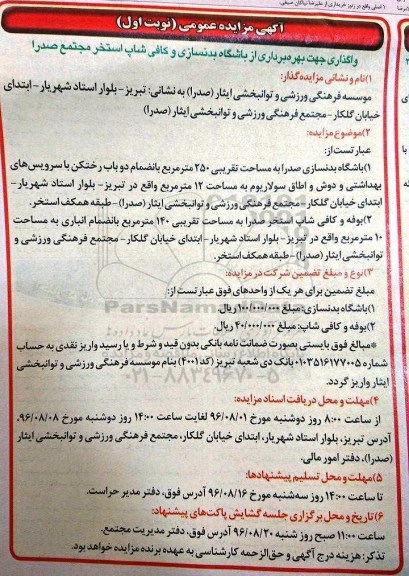 آگهی مزایده عمومی (نوبت اول)
واگذاری جهت بهره‌برداری از باشگاه بدنسازی و کافی شاپ استخر مجتمع صدرا
۱)نام و نشانی مزایده‌گذار:
موسسه فرهنگی ورزشی و توانبخشی ایثار (صدرا) به نشانی: تبریز- بلوار استاد شهریار- ابتدای
خیابان گلکار- مجتمع فرهنگی ورزشی و توانبخشی ایثار (صدرا)
۲)موضوع مزایده:
عبارتست از:
۱)باشگاه بدنسازی صدرا به مساحت تقریبی ۲۵۰ مترمربع بانضمام دو باب رختکن با سرویس‌های
بهداشتی و دوش و اطاق سولاریوم به مساحت ۱۲ مترمربع واقع در تبریز- بلوار استاد شهریار-
ابتدای خیابان گلکار- مجتمع فرهنگی ورزشی و توانبخشی ایثار (صدرا)- طبقه همکف استخر.
۲)بوفه و کافی شاپ استخر صدرا به مساحت تقریبی ۱۴۰ مترمربع بانضمام انباری به مساحت
۱۰ مترمربع واقع در تبریز- بلوار استاد شهریار- ابتدای خیابان گلکار- مجتمع فرهنگی ورزشی و
توانبخشی ایثار (صدرا)- طبقه همکف استخر.
۳)نوع و مبلغ تضمین شرکت در مزایده:
مبلغ تضمین برای هر یک از واحدهای فوق عبارتست از:
۱)باشگاه بدنسازی: مبلغ ۱۰۰/۰۰۰/۰۰۰ ریال
۲)بوفه و کافی شاپ: مبلغ ۴۰/۰۰۰/۰۰۰ ریال
*مبالغ فوق بایستی بصورت ضمانت نامه بانکی بدون قید و شرط و یا رسید واریز نقدی به حساب
شماره ۰۱۰۳۵۱۶۱۷۷۰۰۵ بانک دی شعبه تبریز (کد ۴۰۰۱) بنام موسسه فرهنگی ورزشی و توانبخشی
ایثار واریز گردد.
۴)مهلت و محل دریافت اسناد مزایده:
از ساعت ۸:۰۰ روز دوشنبه مورخ ۹۶/۰۸/۰۱ لغایت ساعت ۱۴:۰۰ روز دوشنبه مورخ ۹۶/۰۸/۰۸.
آدرس تبریز، بلوار استاد شهریار، ابتدای خیابان گلکار، مجتمع فرهنگی ورزشی و توانبخشی ایثار
(صدرا)، دفتر امور مالی.
۵)مهلت و محل تسلیم پیشنهادها:
تا ساعت ۱۴:۰۰ روز سه‌شنبه مورخ ۹۶/۰۸/۱۶ آدرس فوق، دفتر مدیر حراست.
۶)تاریخ و محل برگزاری جلسه گشایش پاکت‌های پیشنهاد:
ساعت ۱۱:۰۰ صبح روز شنبه ۹۶/۰۸/۲۰ آدرس فوق، دفتر مدیریت مجتمع.
تذکر: هزینه درج آگهی و حق‌الزحمه کارشناسی به عهده برنده مزایده خواهد بود.